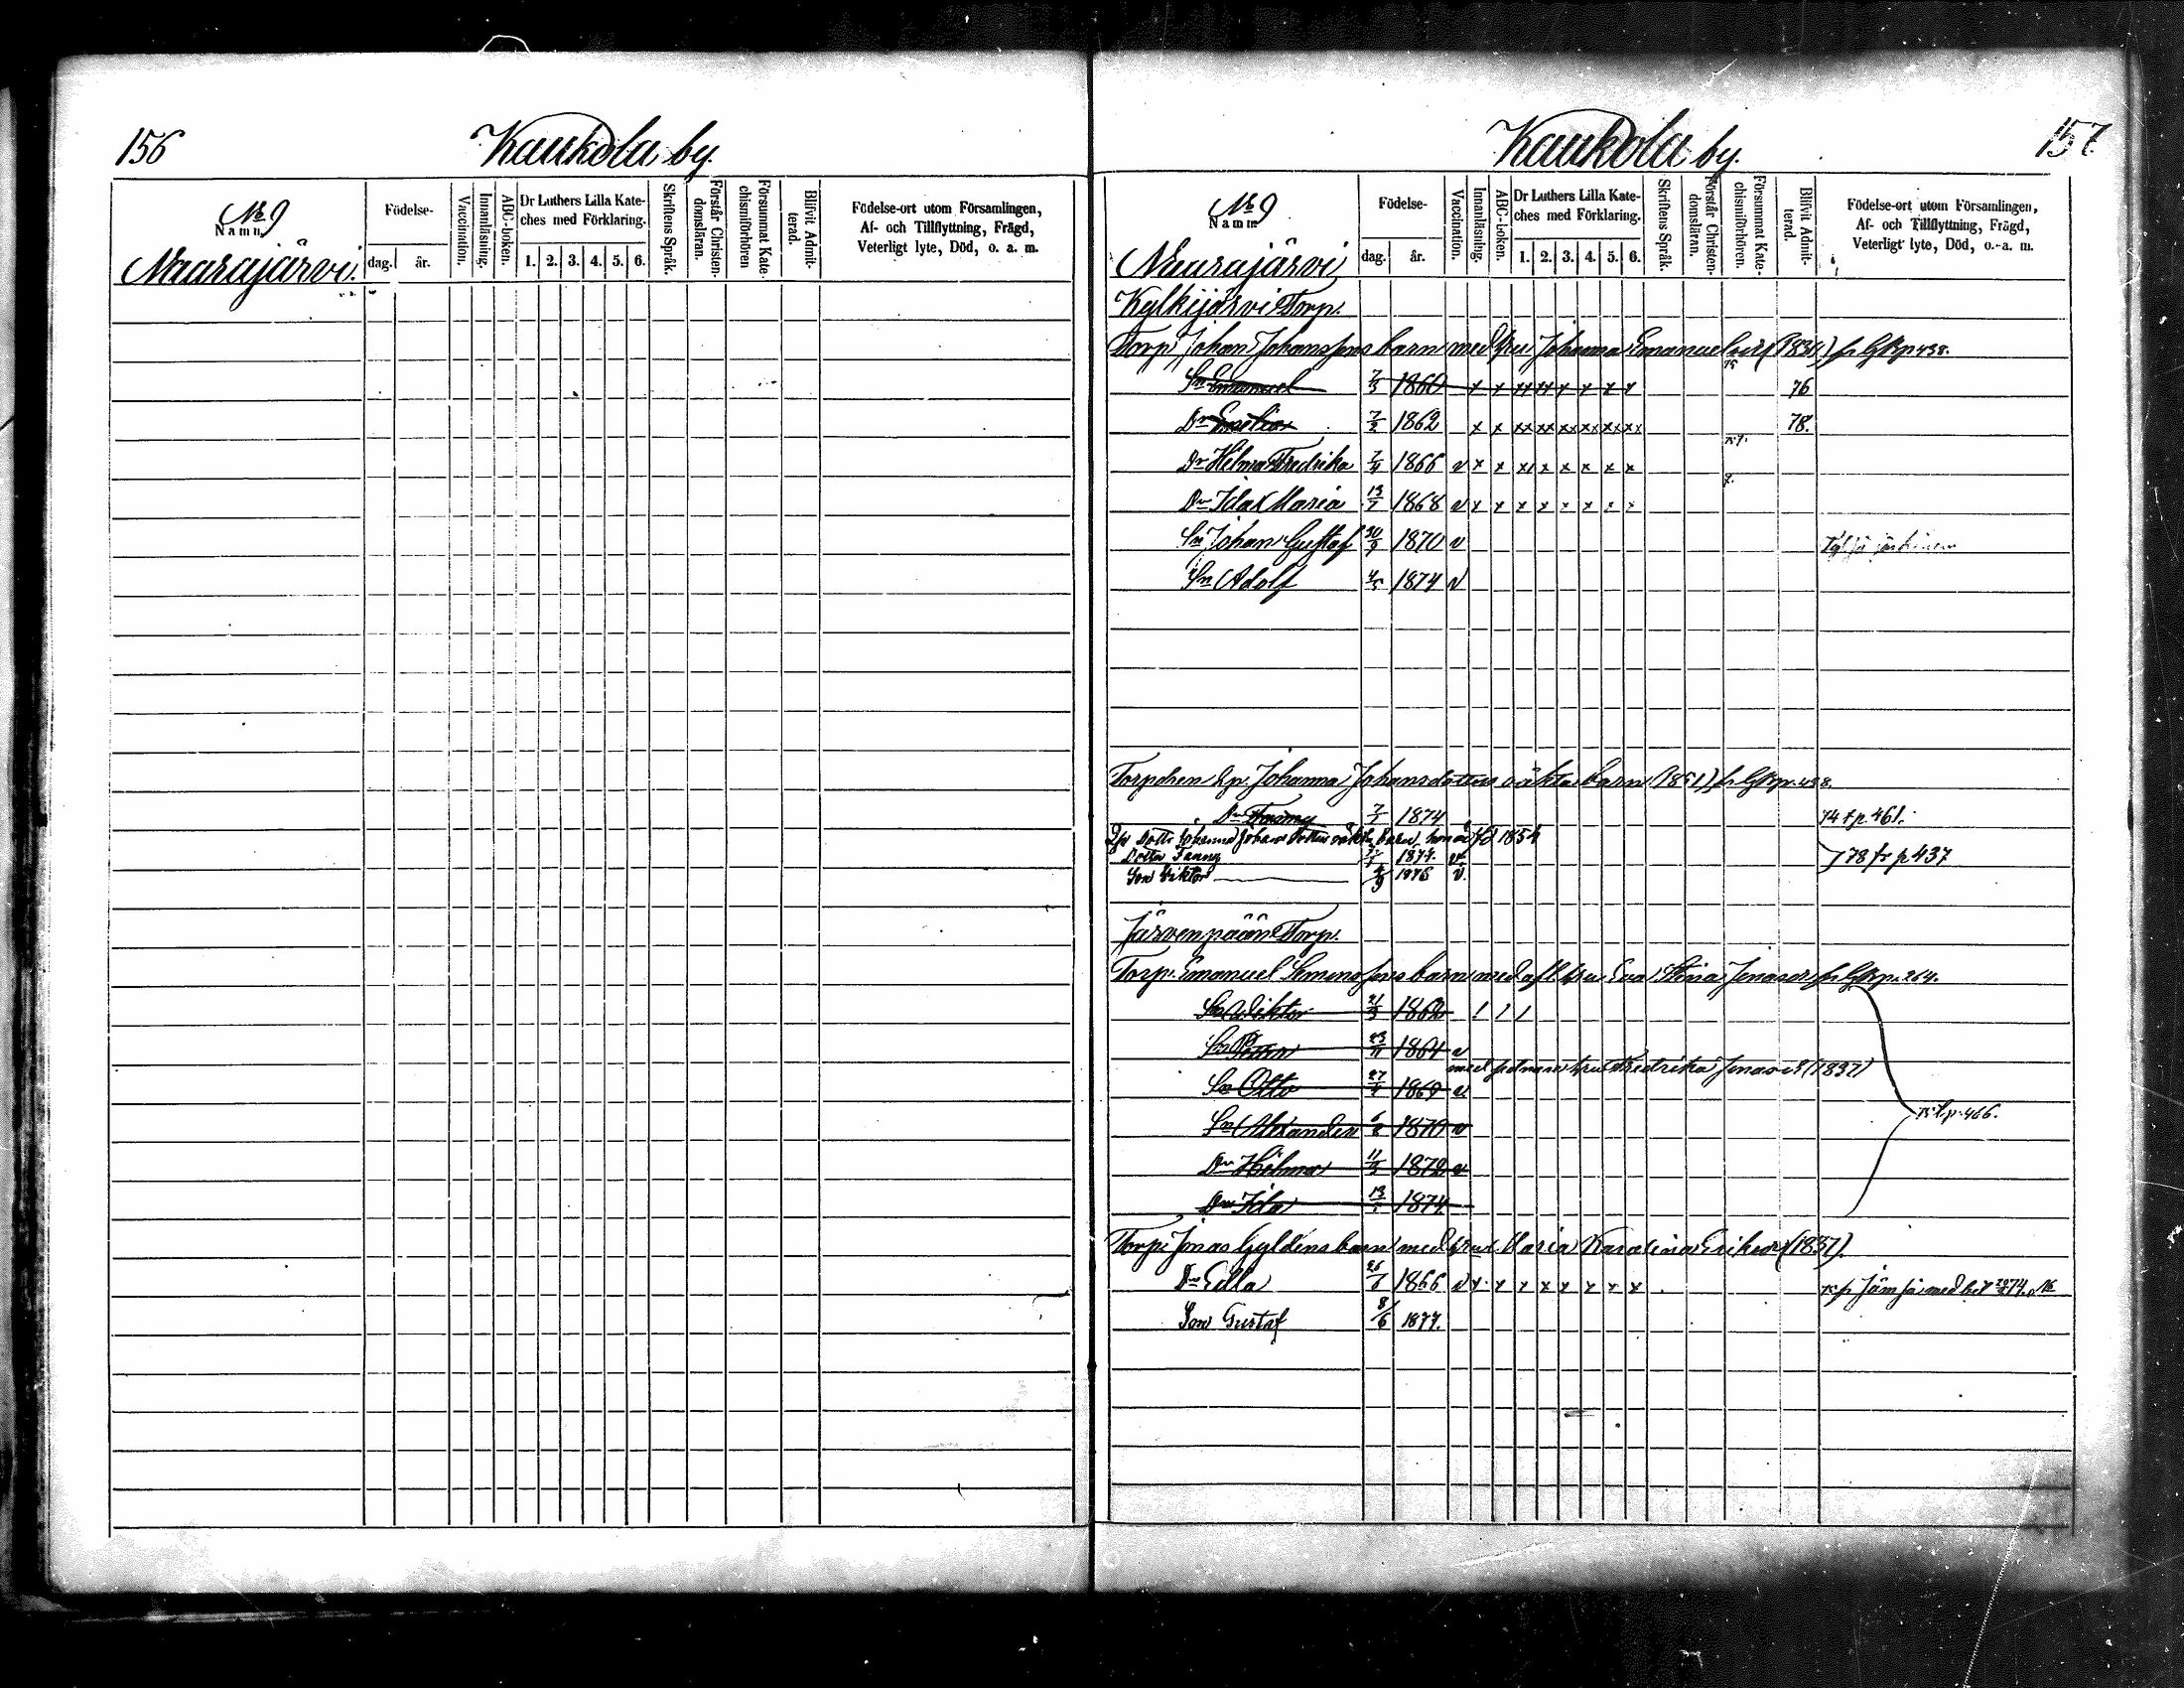 156
Kaukola by.
No 9
Namn.
Naarajärvi.
Födelse-
dag.
år.
Vaccination.
Innanläsning.
ABC-boken.
Dr Luthers Lilla Kate-
ches med Förklaring.
1. 2. 3. 4. 5. 6.
Skriftens Språk.
Förstår Christen-
domsläran.
Försummat Kate-
chismiförhören
Blifvit Admit-
terad.
Födelse-ort utom Församlingen,
Af- och Tillflyttning, Frägd,
Veterligt lyte, Död, o. a. m.
157
Kaukola by.
No 9
Namn
Naarajärvi
Födelse-
dag.
år.
Vaccination.
Innanläsning.
ABC-boken.
Dr Luthers Lilla Kate-
ches med Förklaring.
1. 2. 3. 4. 5. 6.
Skriftens Språk.
Förstår Christen-
domsläran.
Försummat Kate-
chismiförhören.
Blifvit Admit-
terad.
Födelse-ort utom Församlingen,
Af- och Tillflyttning, Frägd,
Veterligt lyte, Död, o. a. m.
Kylkijärvi Torp.
Torp Johan Johanssons barn med hu Johanna Emanuelsdr (1834) fr GKp 438.
Sn Emanuel 7/3 1860 x x xx xx x x x x 76
Dr Emilia 7/2 1862 x x xx xx xx xx xx xx 78.
Dr Hilma Fredrika 7/4 1866 v x x xx x x x x x
Dr Ida Maria 13/7 1868 v x x x x x x x x
Sn Johan Gustaf 30/9 1870 v
Sn Adolf 4/5 1874 v
Johanna Johansdotters oäkta barn (1851) fr GKp. 438.
Dr Fanny 7/1 1874 74 t p. 461.
Johanna Johans dotters oäkta barn, hon är föd 1854
Dotter Fanny 1874. v. 78 fr p 437
Son Viktor 4/9 1876 v.
Järvenpään Torp.
Torp. Emanuel Simonssons barn med afl. hu Eva Stina Jonasdr fr GKp. 264.
Sn Wiktor 21/3 1862 1 1 1
Sn 23/11 1864 v
med hu Fredrika Jonasdr (1837)
Sn Otto 27/4 1869 v.
Sn Alexander 6/2 1870 v
t. p. 466.
Dr Hilma 11/3 1872 v
Dr Ida 13/1 1874
Torp. Jonas Gyldéns barn med hru Maria Karolina Eriksdr (1837).
Dr Edla 26/6 1866 v x x x x x x x x Jämsä med bet 74.
Son Gustaf 8/6 1877.